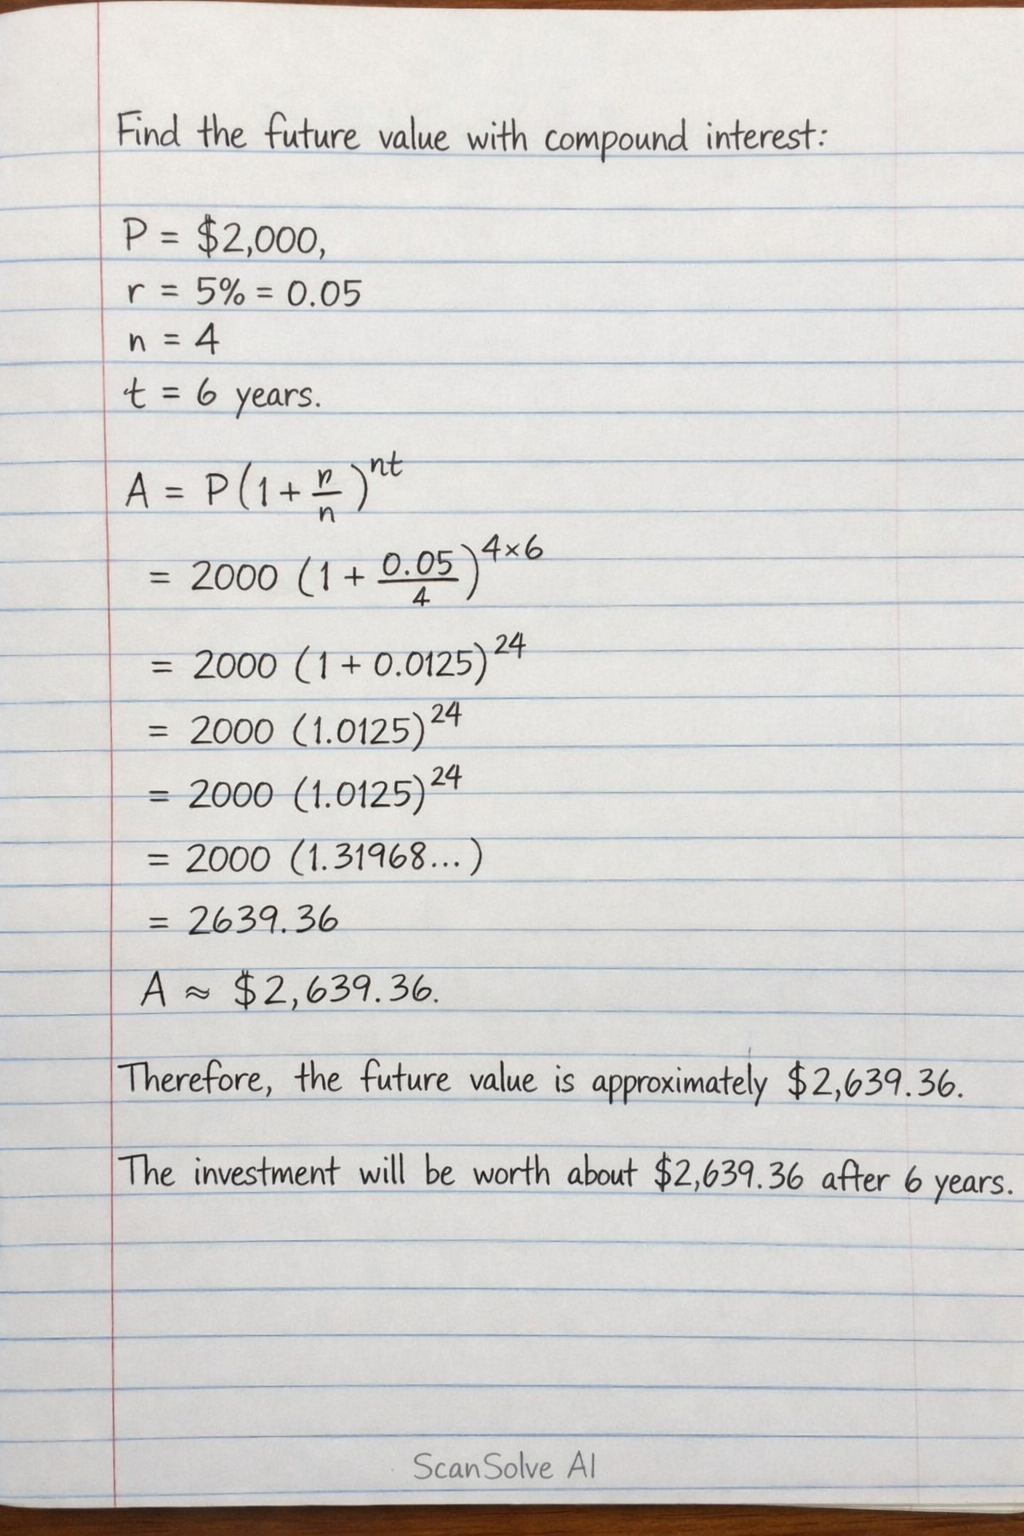 Find the future value with compound interest:
P = $2,000,
r = 5% = 0.05
n = 4
t = 6 years.
A = P(1 + n/n)^nt
= 2000 (1 + 0.05/4)^4×6
= 2000 (1 + 0.0125)^24
= 2000 (1.0125)^24
= 2000 (1.0125)^24
= 2000 (1.31968...)
= 2639.36
A ≈ $2,639.36.
Therefore, the future value is approximately $2,639.36.
The investment will be worth about $2,639.36 after 6 years.
ScanSolve AI